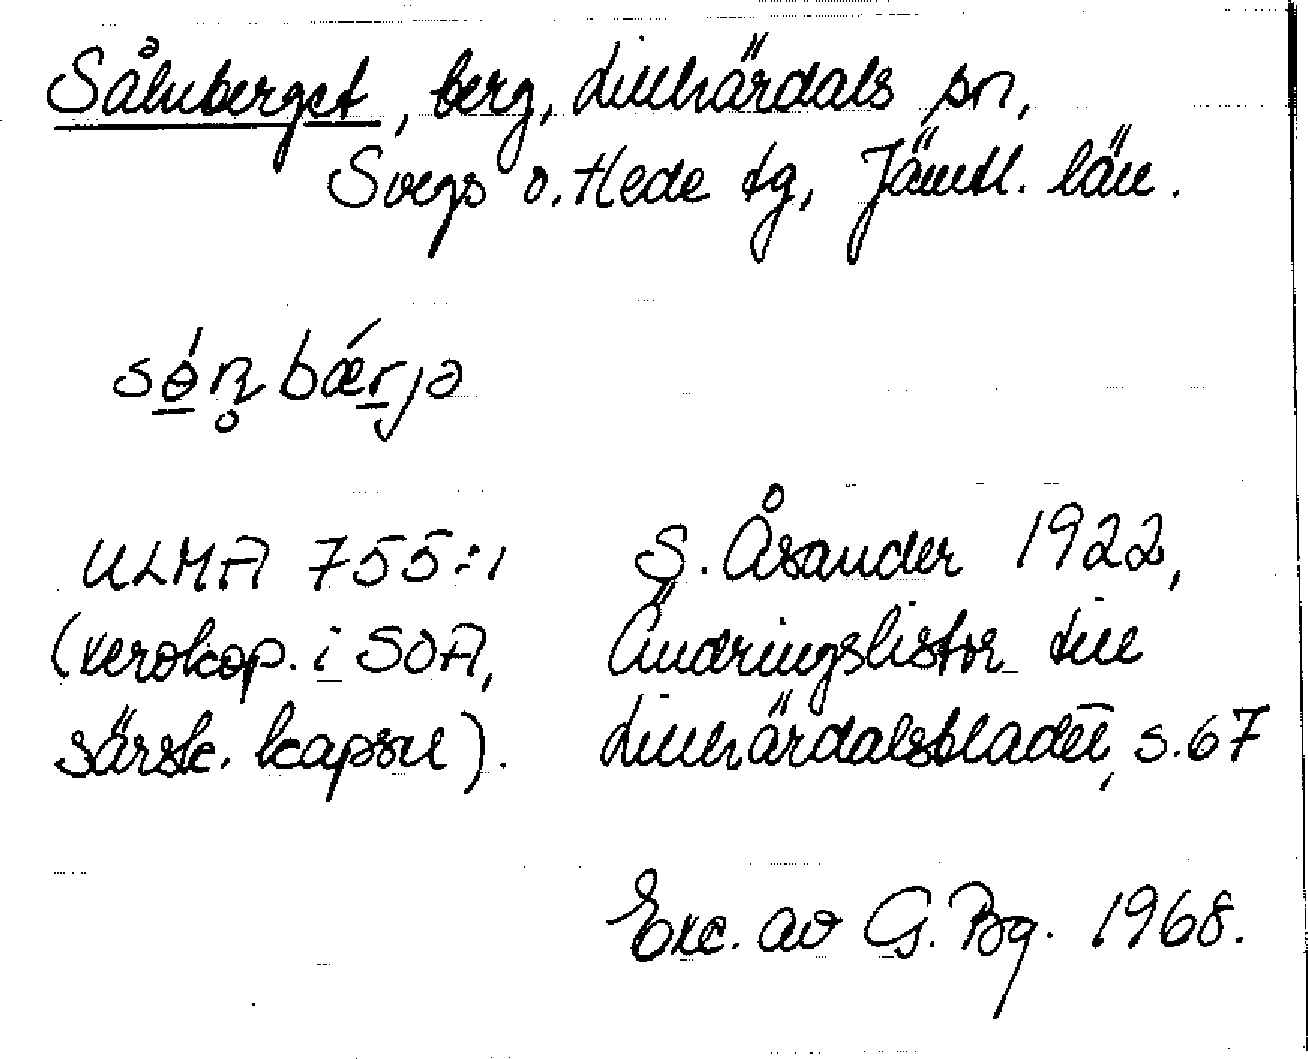 Sålnberget, berg, Lillhärdals sn,
Svegs o. Hede tg, Jämtl. län.
ULMA 755:1
(xerokop. i SOA,
särsk. kapsel).
S. Åsander 1922,
Ändringslistor till
Lillhärdalsbladet, s.67
Exc. av G. Bg. 1968.